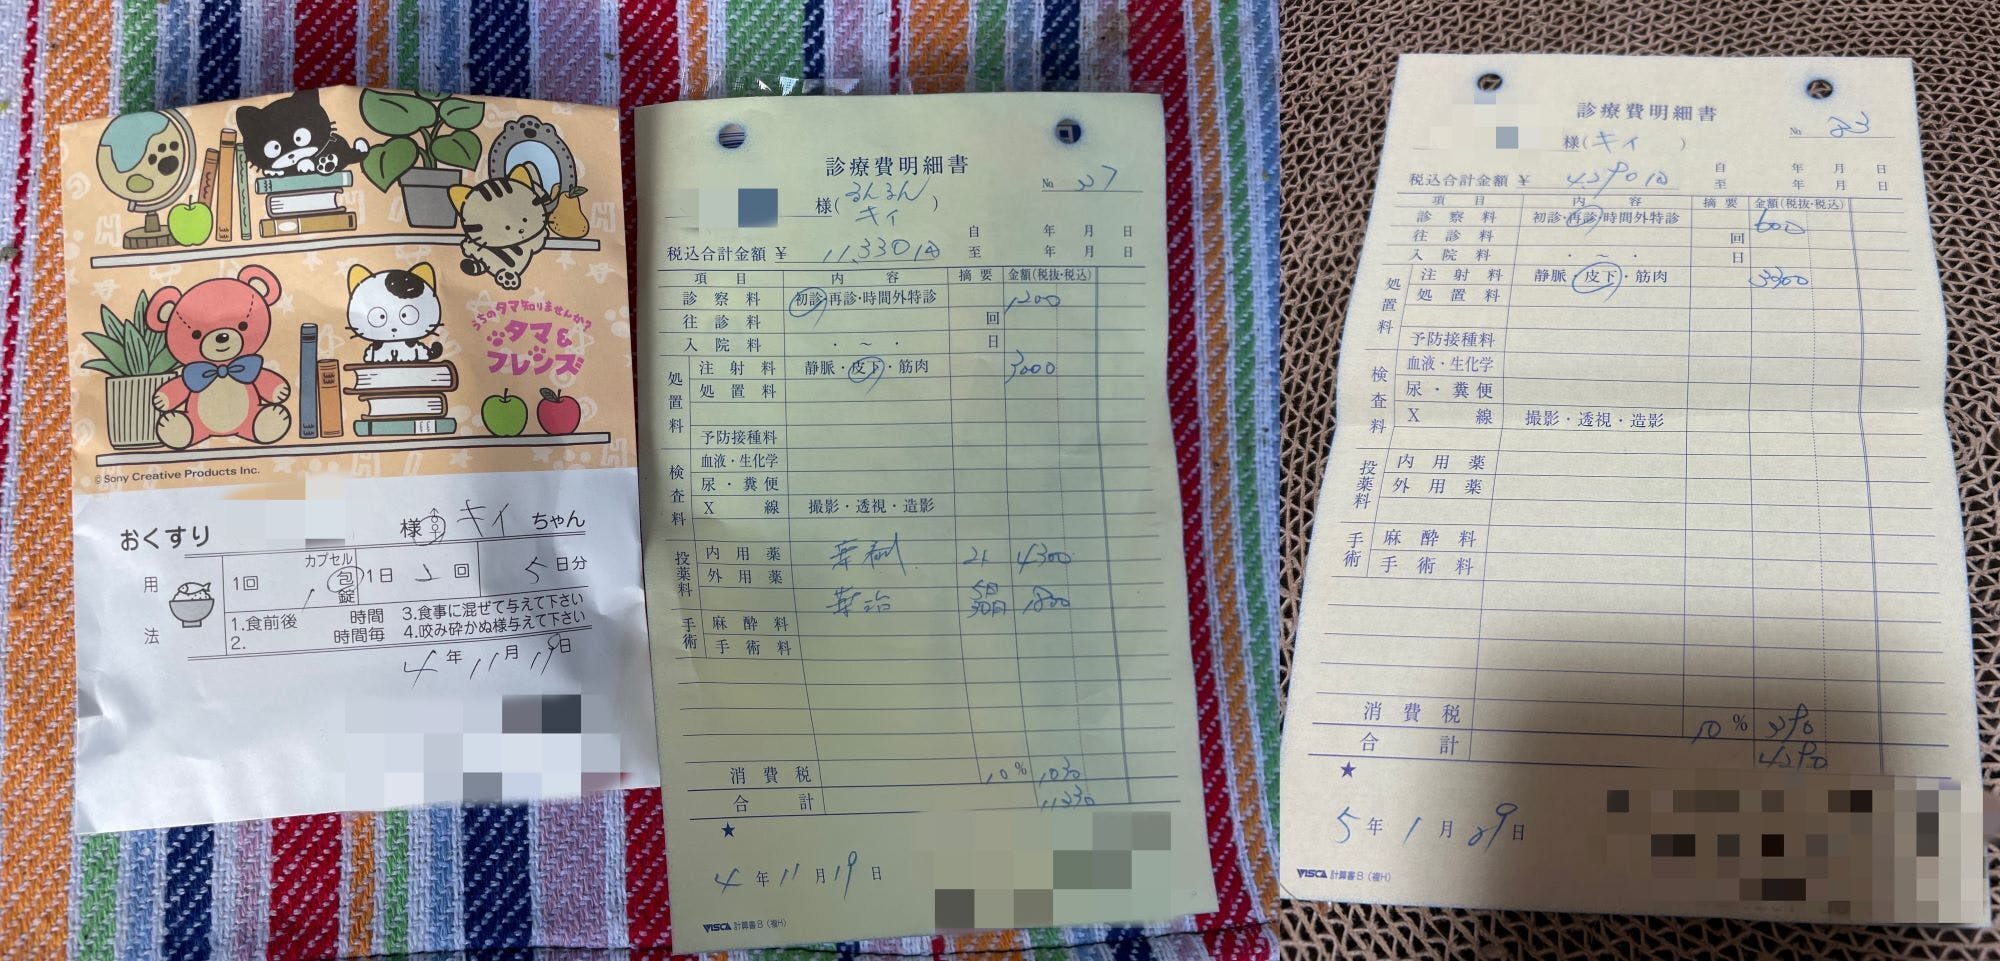 うちのタマ知りませんか?
タマ&
フレンズ
© Sony Creative Products Inc.
おくすり 様 キィ ちゃん
用法
1回 1 カプセル 包 錠 1日 2 回 5 日分
1.食前後 時間 3.食事に混ぜて与えて下さい
2. 時間毎 4.咬み砕かぬ様与えて下さい
4 年 11 月 19 日
診療費明細書
様( るんるん キィ ) No 27
税込合計金額 ¥ 11,330 自 年 月 日
至 年 月 日
項目 内容 摘要 金額(税抜・税込)
診察料 初診・再診・時間外特診 1,200
往診料 回
入院料 ・ ~ ・ 日
処置料
注射料 静脈・皮下・筋肉 3000
処置料
予防接種料
検査料
血液・生化学
尿・糞便
X線 撮影・透視・造影
投薬料
内用薬 4300
外用薬
5日 30日 1800
手術
麻酔料
手術料
消費税 10% 1030
合計 11330
★
4 年 11 月 19 日
VISCA 計算書B(複H)
診療費明細書
様( キィ ) No 23
税込合計金額 ¥ 4290 自 年 月 日
至 年 月 日
項目 内容 摘要 金額(税抜・税込)
診察料 初診・再診・時間外特診 600
往診料 回
入院料 ・ ~ ・ 日
処置料
注射料 静脈・皮下・筋肉 3300
処置料
予防接種料
検査料
血液・生化学
尿・糞便
X線 撮影・透視・造影
投薬料
内用薬
外用薬
手術
麻酔料
手術料
消費税 10% 390
合計 4290
★
5 年 1 月 29 日
VISCA 計算書B(複H)